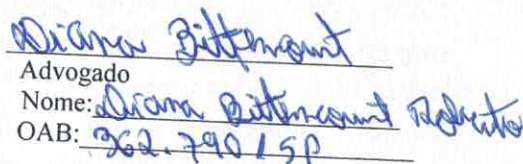 Diana Bittencourt
Advogado
Nome: Diana Bittencourt Roberto
OAB: 362.790/SP